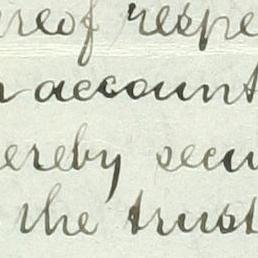 reof respe
account
ereby secu
the trust